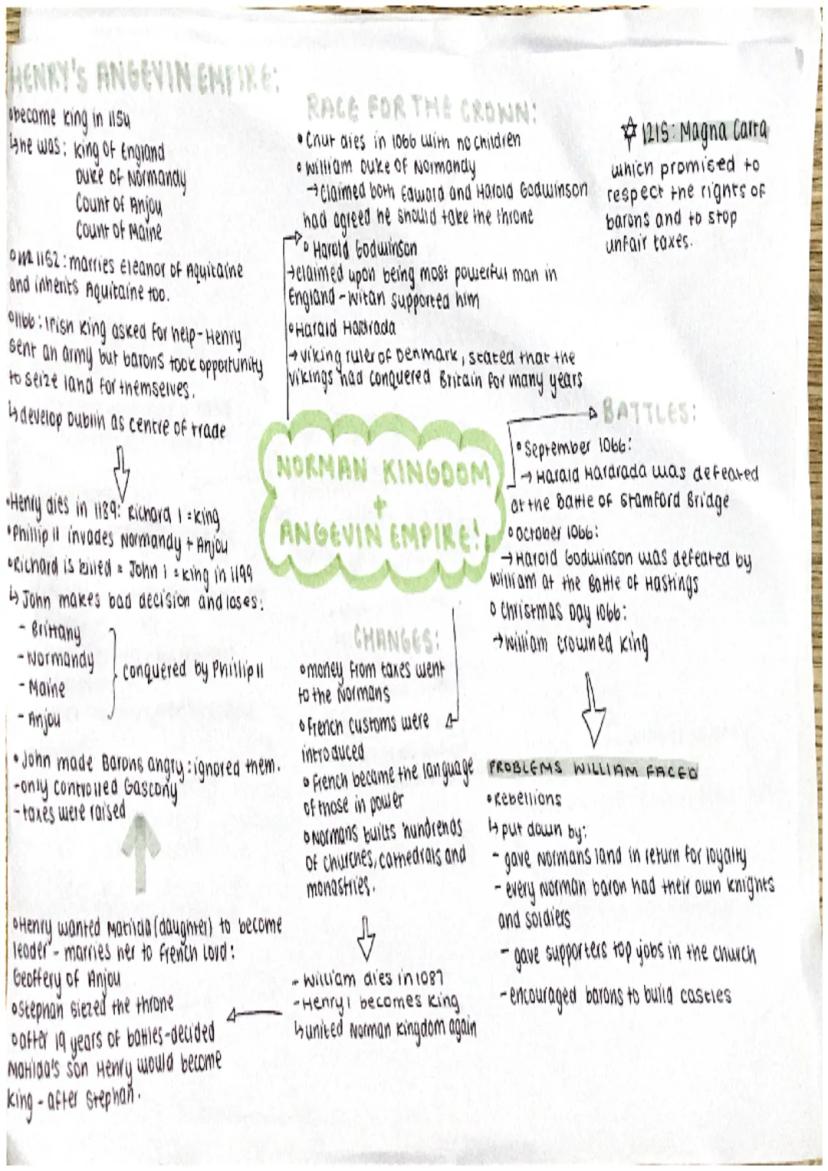 HENRY'S ANGEVIN EMPIRE:
•become king in 1154
↳he was: King of England
Duke of Normandy
Count of Anjou
Count of Maine
•in 1152: marries Eleanor of Aquitaine
and inherits Aquitaine too.
•1166: Irish king asked for help - Henry
sent an army but barons took opportunity
to seize land for themselves.
↳develop Dublin as centre of trade
•Henry dies in 1189: Richard I = king
•Phillip II invades Normandy + Anjou
•Richard is killed = John I = king in 1199
↳ John makes bad decision and loses:
- Brittany
- Normandy
- Maine
- Anjou
conquered by Phillip II
• John made Barons angry: ignored them.
-only controlled Gascony
- taxes were raised
•Henry wanted Matilda (daughter) to become
leader - marries her to French Lord:
Geoffery of Anjou
•Stephan siezed the throne
•after 19 years of battles-decided
Matilda's son Henry would become
king - after Stephan.
RACE FOR THE CROWN:
• Cnut dies in 1066 with no children
• William Duke of Normandy
→claimed both Edward and Harold Godwinson
had agreed he should take the throne
• Harold Godwinson
→claimed upon being most powerful man in
England - Witan supported him
•Harald Hadrada
→viking ruler of Denmark, stated that the
vikings had conquered Britain for many years
NORMAN KINGDOM
+
ANGEVIN EMPIRE!
CHANGES:
•money from taxes went
to the Normans
•French customs were
introduced
• French became the language
of those in power
•Normans builts hundreds
of churches, cathedrals and
monastries.
- William dies in 1087
- Henry I becomes King
↳united Norman kingdom again
☆ 1215: Magna Carta
which promised to
respect the rights of
barons and to stop
unfair taxes.
BATTLES:
• September 1066:
→ Harald Hardrada was defeated
at the Battle of Stamford Bridge
•October 1066:
→ Harold Godwinson was defeated by
William at the Battle of Hastings
• Christmas Day 1066:
→William crowned king
PROBLEMS WILLIAM FACED
•Rebellions
↳put down by:
- gave Normans land in return for loyalty
- every Norman baron had their own knights
and soldiers
- gave supporters top jobs in the church
-encouraged barons to build castles